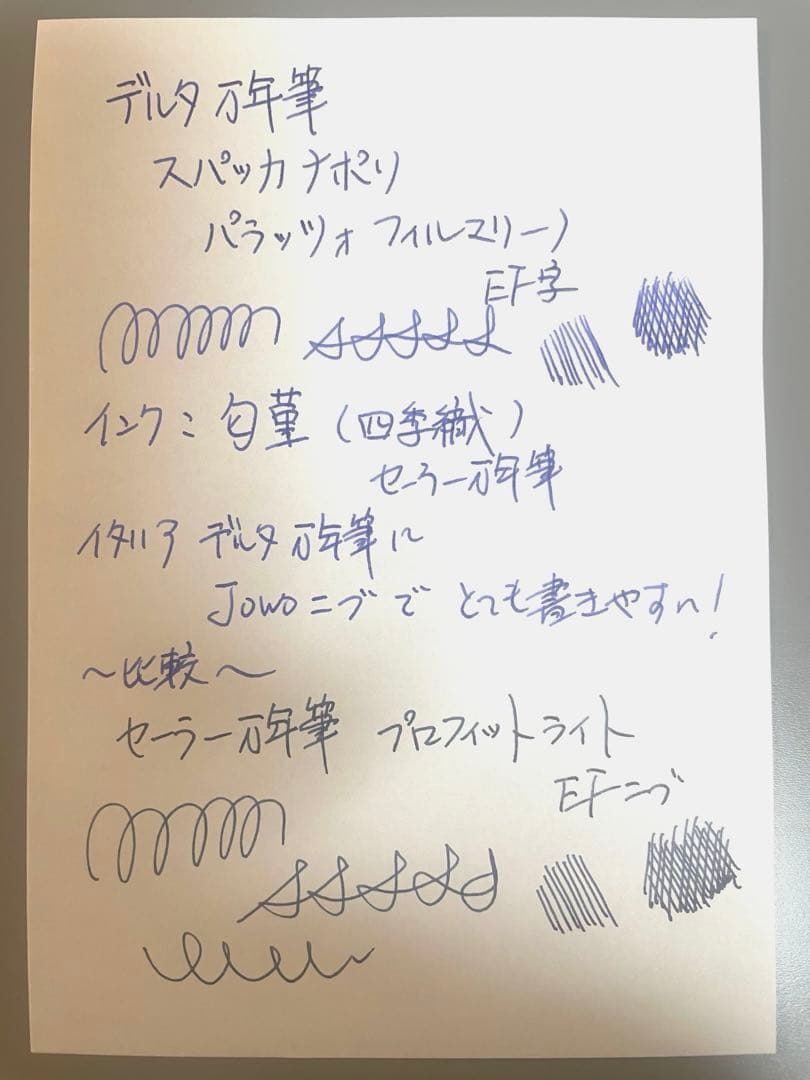 デルタ万年筆
スパッカナポリ
パラッツォ フィルマリーノ
EF字
インク:匂菫(四季織)
セーラー万年筆
イタリア デルタ万年筆に
Jowoニブで とても書きやすい!
～比較～
セーラー万年筆 プロフィットライト
EFニブ